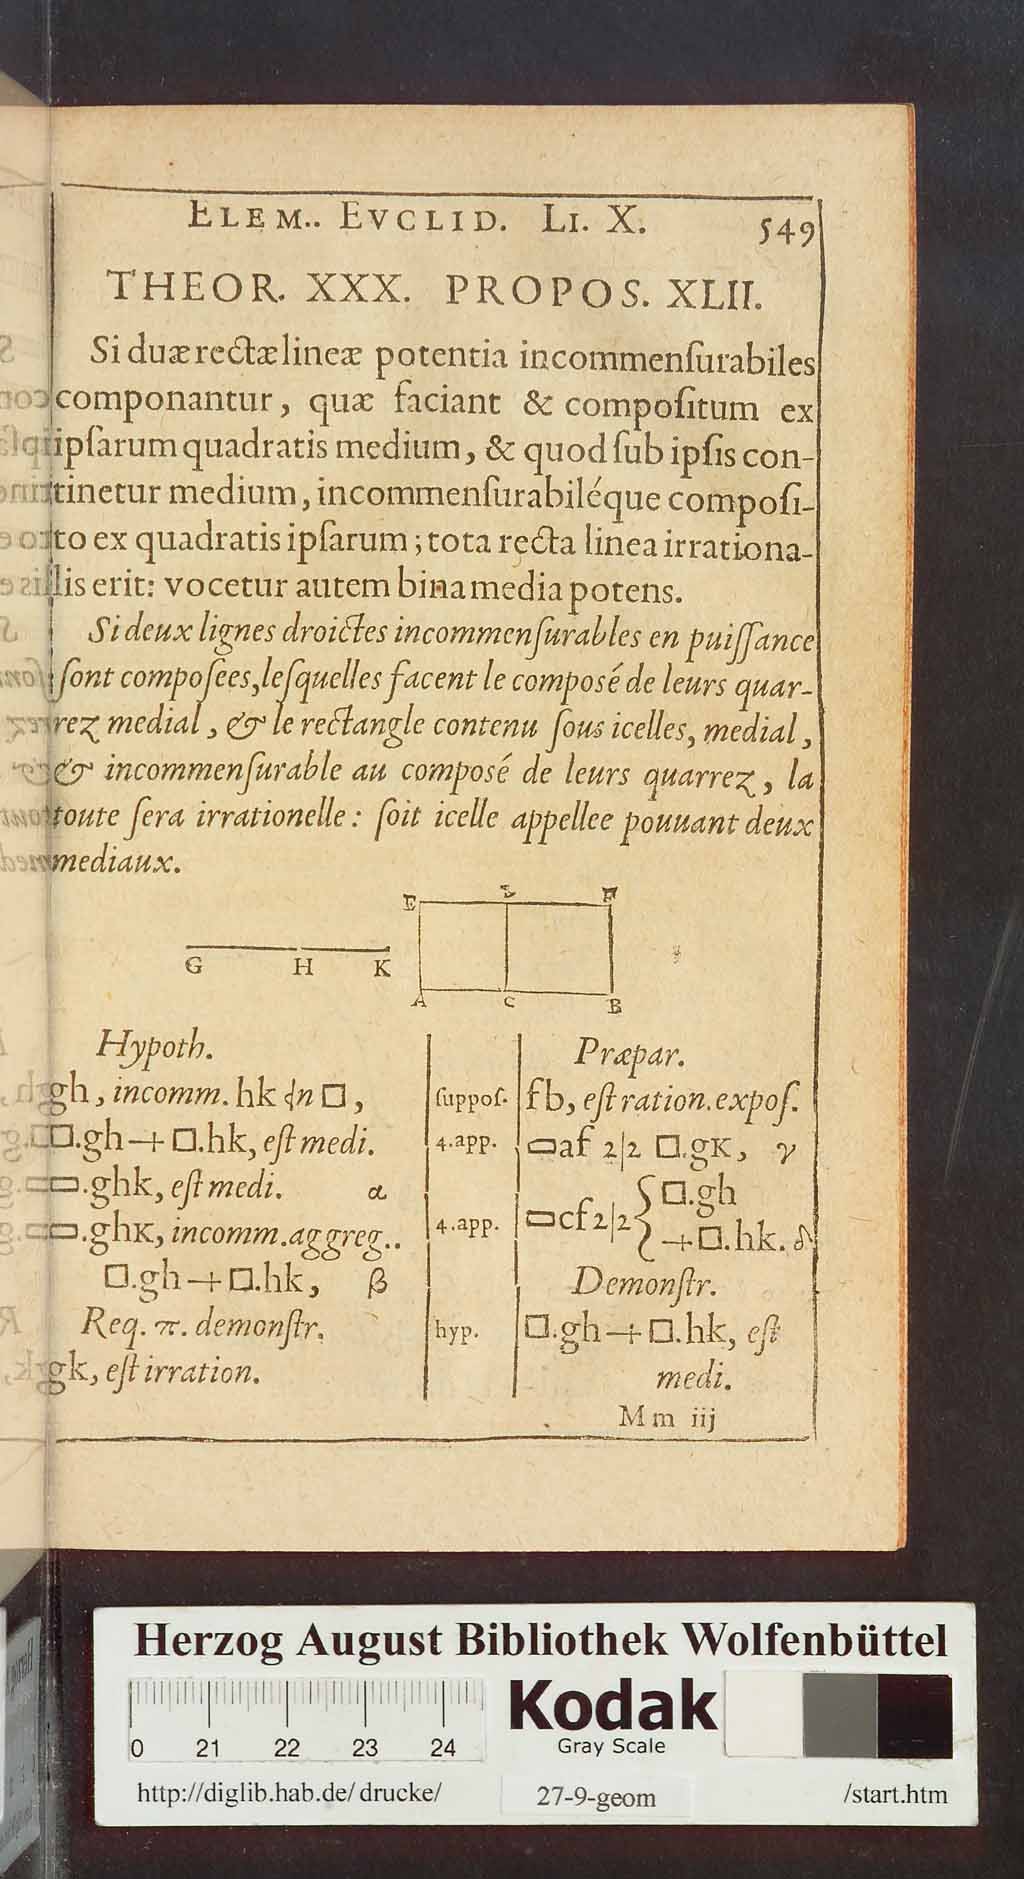 ELEM.. EVCLID. LI. X. 549
THEOR. XXX. PROPOS. XLII.
Si duæ rectæ lineæ potentia incommenſurabiles
componantur, quæ faciant & compoſitum ex
ipſarum quadratis medium, & quod ſub ipſis con-
tinetur medium, incommenſurabiléque compoſi-
to ex quadratis ipſarum; tota recta linea irrationa-
lis erit: vocetur autem bina media potens.
Si deux lignes droictes incommenſurables en puiſſance
ſont compoſees, leſquelles facent le compoſé de leurs quar-
rez medial, & le rectangle contenu ſous icelles, medial,
& incommenſurable au compoſé de leurs quarrez, la
toute ſera irrationelle: ſoit icelle appellee pouuant deux
mediaux.
E F
G H K
A C B
Hypoth.
gh, incomm. hk in □,
□.gh + □.hk, eſt medi.
▭.ghk, eſt medi. α
▭.ghK, incomm. aggreg..
□.gh + □.hk, β
Req. π. demonſtr.
gk, eſt irration.
Præpar.
ſuppoſ. fb, eſt ration. expoſ.
4.app. ▭af 2|2 □.gK, γ
4.app. ▭cf 2|2 { □.gh
+ □.hk. δ
Demonſtr.
hyp. □.gh + □.hk, eſt
medi.
Mm iij
Herzog August Bibliothek Wolfenbüttel
0 21 22 23 24
Kodak
Gray Scale
http://diglib.hab.de/drucke/ 27-9-geom /start.htm